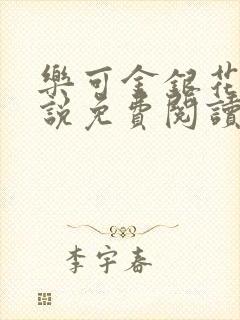 樂可金銀花
說免費閱讀
李宇春